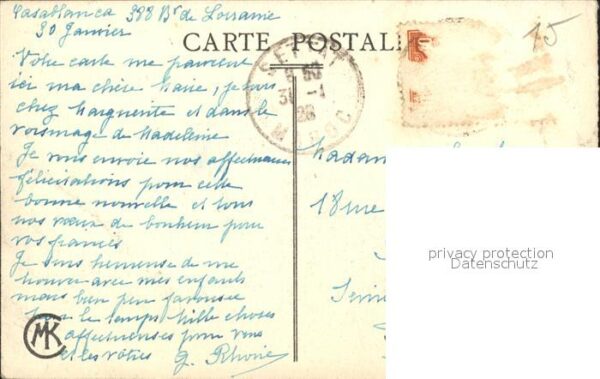 Casablanca 388 Bd de Lorraine
30 Janvier
CARTE POSTALE
15
Votre carte me parvient
ici ma chère Marie, je suis
chez Marguerite et dans le
voisinage de Madeleine
Je vous envoie nos affectueuses
félicitations pour cette
bonne nouvelle et tous
nos vœux de bonheur pour
vos fiancés
Je suis heureuse de me
trouver avec mes enfants
mais bien peu favorisée
par le temps Mille choses
affectueuses pour vous
et les vôtres
SETTAT
MAROC
Madam
18 rue
privacy protection
Datenschutz
MK